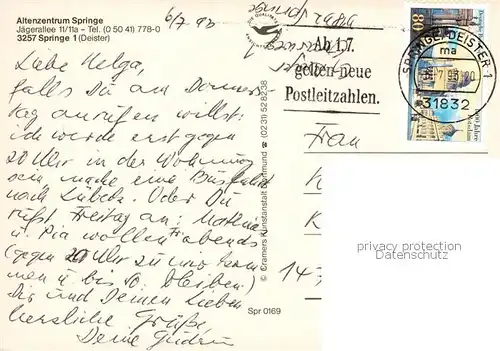 Altenzentrum Springe
Jägerallee 11/11a – Tel. (0 50 41) 778-0
3257 Springe 1 (Deister)
6/7 93
Liebe Helga,
falls Du am Donners-
tag anrufen willst:
ich werde erst gegen
20 Uhr in der Wohnung
sein, mache eine Busfahrt
nach Lübeck. Oder Du
rufst Freitag an:
u. Pia wollen Fr abends
(gegen 20 Uhr zu mir kom
men u. bis So. bleiben)
Dir und Deinen Lieben
herzliche Grüße,
Deine Gudrun
© Cramers Kunstanstalt Dortmund ☎ (0231) 528238
Spr 0169
Ab 1.7.
gelten neue
Postleitzahlen.
SPRINGE, DEISTER 1
ma
31832
80
Frau
K
K
143
privacy protection
Datenschutz